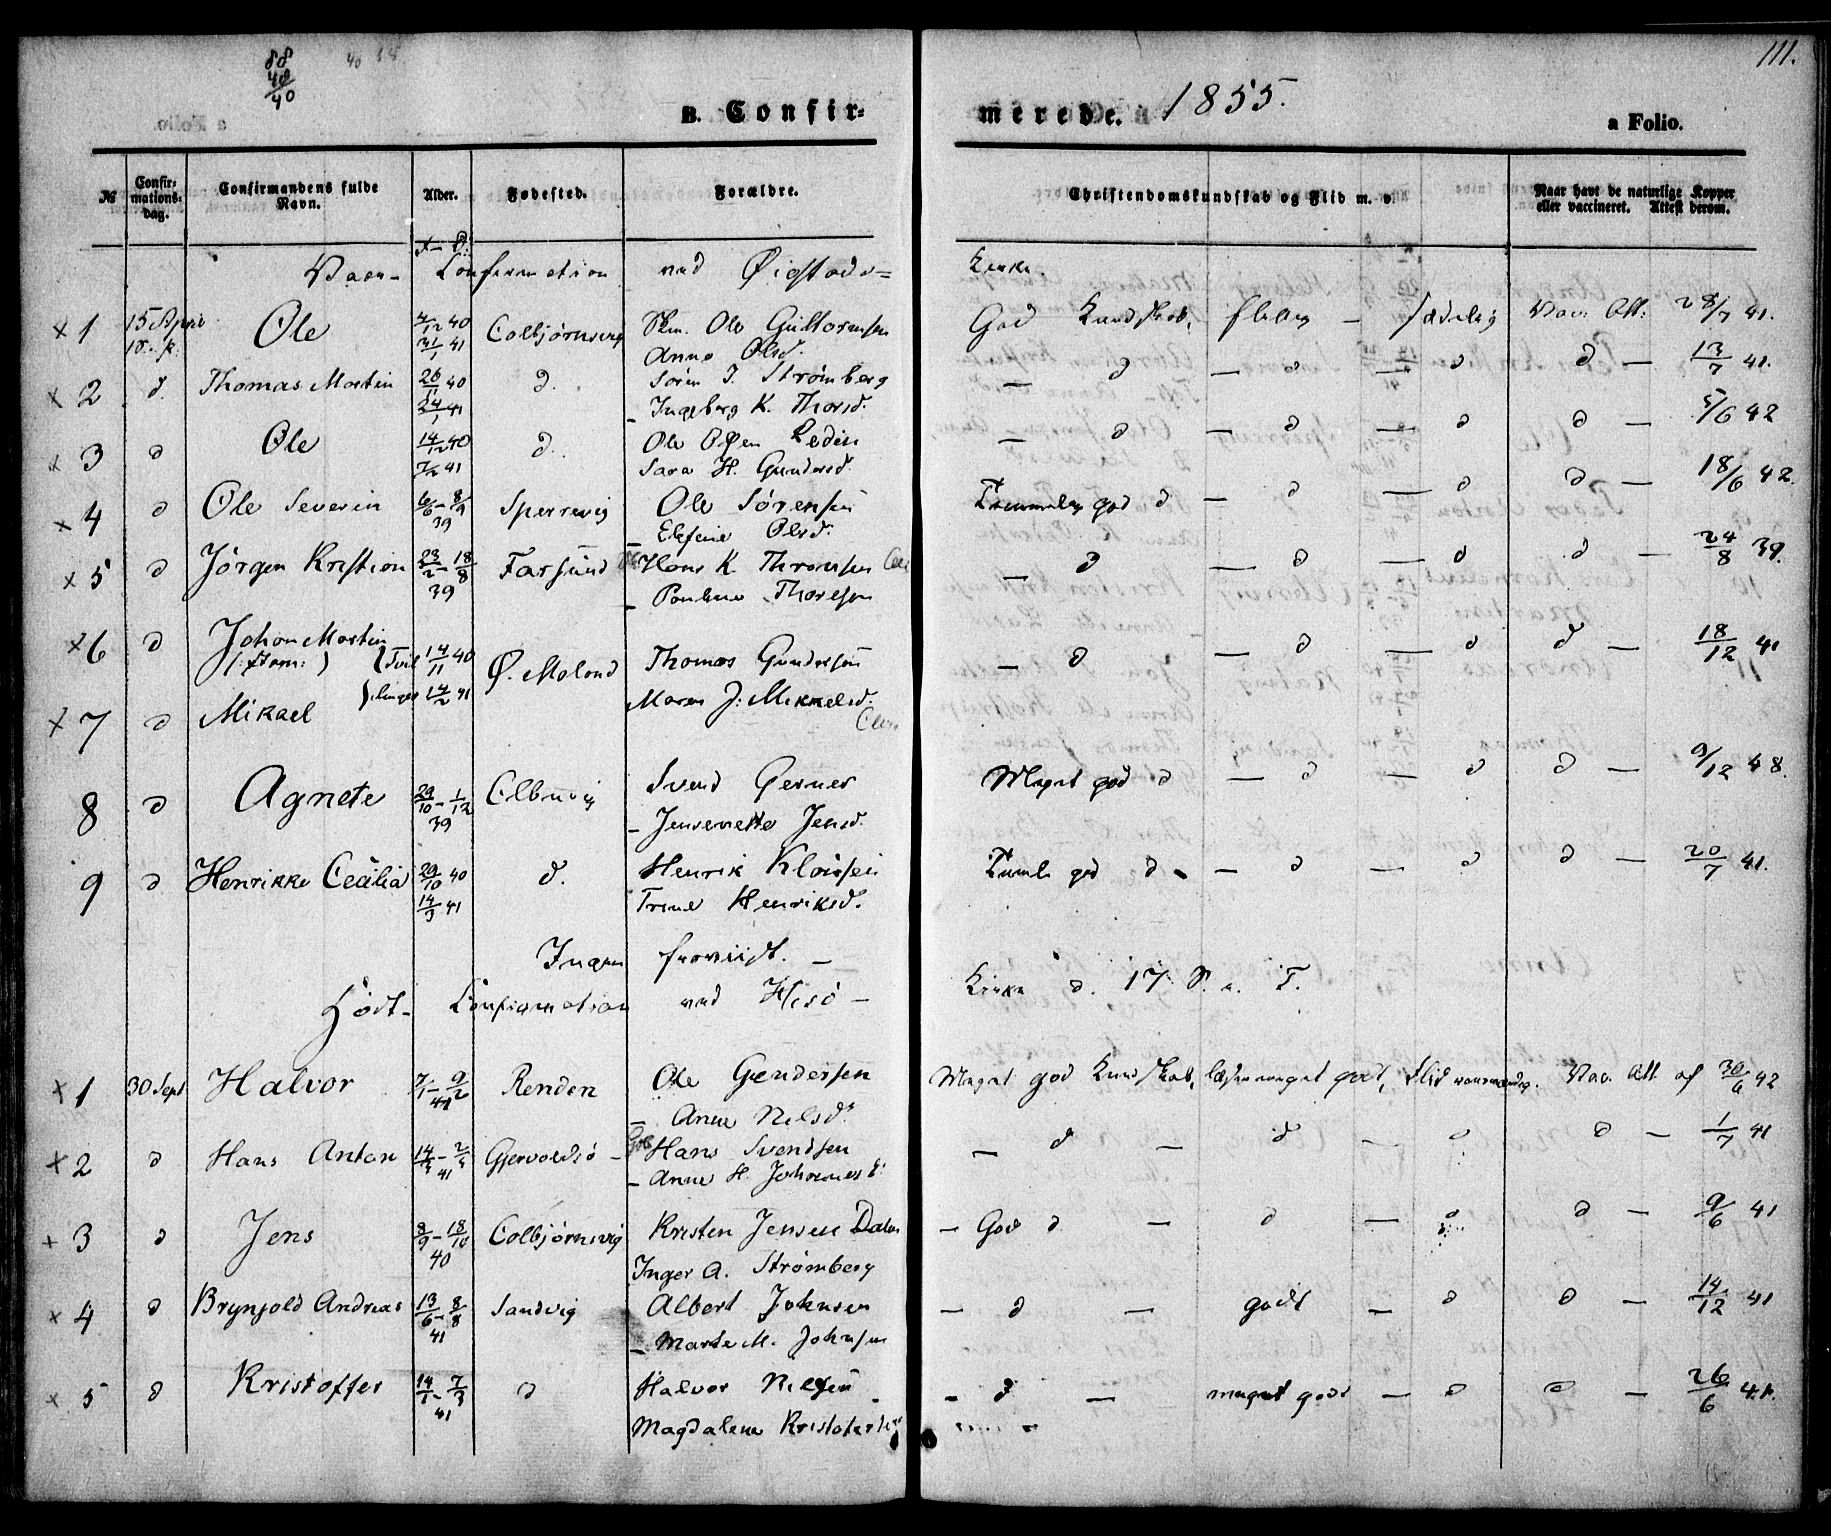 111.
88
40
40
B. Confir-
merede. 1855.
a Folio.
№ Confir-mations-dag. Confirmandens fulde Navn. Alder. Fødested. Forældre. Christendomskundskab og Flid m. v. Naar havt de naturlige Kopper eller vaccineret. Attest derom.
Confirmation ved Øiestads= Kirke.
x 1 15 April Ole 4/12 40 31/1 41 Colbjørnsvig Ole Guttormsen God Kundskab, flittig — sædelig Vac. Att: 28/7 41.
Anne Olsd.
x 2 d. Thomas Martin 26/11 40 24/1 41 d. Søren J. Strømberg — d — d — d d — 13/7 41.
— Ingeborg K. Thorsd.
x 3 d Ole 14/12 40 7/2 41 d. Ole Ledin — d — d — d d — 5/6 42
Sara H. Gundersd.
x 4 d Ole Severin 6/6 - 8/9 39 Sperrevig Ole Sørensen Temmelig god d — d — d d — 18/6 42.
— Olsd.
x 5 d Jørgen Kristian 23/2 - 18/8 39 Farsund Hans K. — d — d — d d — 24/8 39.
— Thoresen
x 6 d Johan Martin 14/11 40 Ø. Moland Thomas Gundersen — d — d — d d — 18/12 41
x 7 d Mikael 14/2 41 Maren J. Mikkelsd.
8 d Agnete 29/10 - 1/12 39 Svend Gerner Meget god d — d — d d — 9/12 48.
— Jensd.
9 d Henrikke Cecilia 29/10 40 14/3 41 d. Henrik Temml. god d — d — d d — 20/7 41.
Trine Henriksd.
Ingen
Høst- Confirmation ved Hisø — Kirke d. 17. S. e. T.
x 1 30 Sept Halvor 7/1 - 9/2 41 Renden Ole Gundersen Meget god Kundskab, læser meget godt, Flid Vac. Att. af 30/6 42
— Anne Nilsd.
x 2 d Hans Anton 14/3 - 41 Gjervoldsø Hans Svendsen — d — d — d d — 1/7 41
— Anne H. Johannesd.
x 3 d Jens 8/9 - 18/10 40 Colbjørnsvig Kristen Jensen Dalen — God d — d — d d — 9/6 41
Inger A. Strømberg
x 4 d Brynjold Andreas 13/6 - 8/8 41 Sandvig Albert Johnsen — d — godt — d d — 14/12 41
— Marte M. Johnsen
x 5 d Kristoffer 14/1 - 7/3 41 d Halvor Nilsen — d — meget godt — d d — 26/6 41.
Magdalene